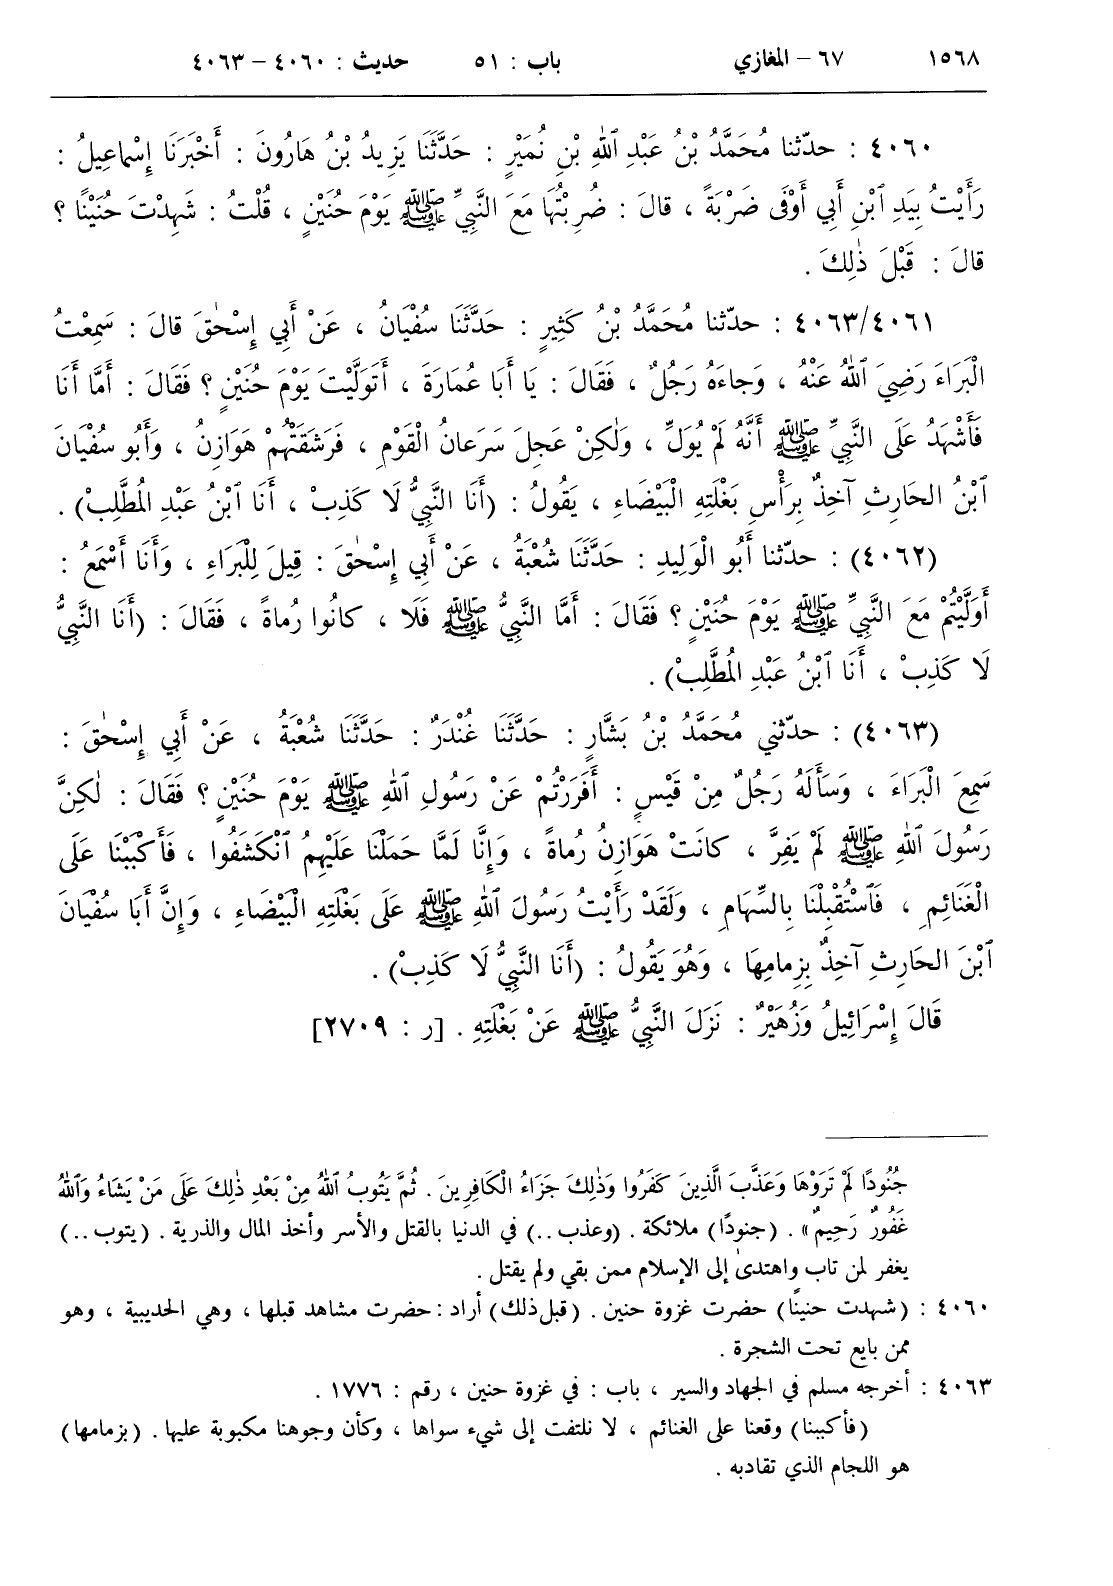 ١٥٦٨ ٦٧ – المغازي باب : ٥١ حديث : ٤٠٦٠ – ٤٠٦٣
٤٠٦٠ : حدّثنا مُحَمَّدُ بْنُ عَبْدِ ٱللهِ بْنِ نُمَيْرٍ : حَدَّثَنَا يَزِيدُ بْنُ هَارُونَ : أَخْبَرَنَا إِسْماعِيلُ :
رَأَيْتُ بِيَدِ ٱبْنِ أَبِي أَوْفَى ضَرْبَةً ، قالَ : ضُرِبْتُهَا مَعَ النَّبِيِّ ﷺ يَوْمَ حُنَيْنٍ ، قُلْتُ : شَهِدْتَ حُنَيْنًا ؟
قالَ : قَبْلَ ذٰلِكَ .
٤٠٦٣/٤٠٦١ : حدّثنا مُحَمَّدُ بْنُ كَثِيرٍ : حَدَّثَنَا سُفْيَانُ ، عَنْ أَبِي إِسْحٰقَ قالَ : سَمِعْتُ
الْبَرَاءَ رَضِيَ ٱللهُ عَنْهُ ، وَجاءَهُ رَجُلٌ ، فَقَالَ : يَا أَبَا عُمَارَةَ ، أَتَوَلَّيْتَ يَوْمَ حُنَيْنٍ ؟ فَقَالَ : أَمَّا أَنَا
فَأَشْهَدُ عَلَى النَّبِيِّ ﷺ أَنَّهُ لَمْ يُوَلِّ ، وَلٰكِنْ عَجِلَ سَرَعانُ الْقَوْمِ ، فَرَشَقَتْهُمْ هَوَازِنُ ، وَأَبُو سُفْيَانَ
ٱبْنُ الحَارِثِ آخِذٌ بِرَأْسِ بَغْلَتِهِ الْبَيْضَاءِ ، يَقُولُ : (أَنَا النَّبِيُّ لَا كَذِبْ ، أَنَا ٱبْنُ عَبْدِ المُطَّلِبْ) .
(٤٠٦٢) : حدّثنا أَبُو الْوَلِيدِ : حَدَّثَنَا شُعْبَةُ ، عَنْ أَبِي إِسْحٰقَ : قِيلَ لِلْبَرَاءِ ، وَأَنَا أَسْمَعُ :
أَوَلَّيْتُمْ مَعَ النَّبِيِّ ﷺ يَوْمَ حُنَيْنٍ ؟ فَقَالَ : أَمَّا النَّبِيُّ ﷺ فَلَا ، كانُوا رُماةً ، فَقَالَ : (أَنَا النَّبِيُّ
لَا كَذِبْ ، أَنَا ٱبْنُ عَبْدِ المُطَّلِبْ) .
(٤٠٦٣) : حدّثني مُحَمَّدُ بْنُ بَشَّارٍ : حَدَّثَنَا غُنْدَرٌ : حَدَّثَنَا شُعْبَةُ ، عَنْ أَبِي إِسْحٰقَ :
سَمِعَ الْبَرَاءَ ، وَسَأَلَهُ رَجُلٌ مِنْ قَيْسٍ : أَفَرَرْتُمْ عَنْ رَسُولِ ٱللهِ ﷺ يَوْمَ حُنَيْنٍ ؟ فَقَالَ : لٰكِنَّ
رَسُولَ ٱللهِ ﷺ لَمْ يَفِرَّ ، كانَتْ هَوَازِنُ رُماةً ، وَإِنَّا لَمَّا حَمَلْنَا عَلَيْهِمُ ٱنْكَشَفُوا ، فَأَكْبَبْنَا عَلَى
الْغَنَائِمِ ، فَٱسْتُقْبِلْنَا بِالسِّهَامِ ، وَلَقَدْ رَأَيْتُ رَسُولَ ٱللهِ ﷺ عَلَى بَغْلَتِهِ الْبَيْضَاءِ ، وَإِنَّ أَبَا سُفْيَانَ
ٱبْنَ الحَارِثِ آخِذٌ بِزِمامِهَا ، وَهُوَ يَقُولُ : (أَنَا النَّبِيُّ لَا كَذِبْ) .
قَالَ إِسْرَائِيلُ وَزُهَيْرٌ : نَزَلَ النَّبِيُّ ﷺ عَنْ بَغْلَتِهِ . [ر : ٢٧٠٩]
جُنُودًا لَمْ تَرَوْهَا وَعَذَّبَ الَّذِينَ كَفَرُوا وَذٰلِكَ جَزَاءُ الْكَافِرِينَ . ثُمَّ يَتُوبُ ٱللهُ مِنْ بَعْدِ ذٰلِكَ عَلَى مَنْ يَشَاءُ وَٱللهُ
غَفُورٌ رَحِيمٌ» . (جنودًا) ملائكة . (وعذب ..) في الدنيا بالقتل والأسر وأخذ المال والذرية . (يتوب ..)
يغفر لمن تاب واهتدىٰ إلى الإسلام ممن بقي ولم يقتل .
٤٠٦٠ : (شهدت حنينًا) حضرت غزوة حنين . (قبل ذلك) أراد : حضرت مشاهد قبلها ، وهي الحديبية ، وهو
ممن بايع تحت الشجرة .
٤٠٦٣ : أخرجه مسلم في الجهاد والسير ، باب : في غزوة حنين ، رقم : ١٧٧٦ .
(فأكببنا) وقعنا على الغنائم ، لا نلتفت إلى شيء سواها ، وكأن وجوهنا مكبوبة عليها . (بزمامها)
هو اللجام الذي تقادبه .